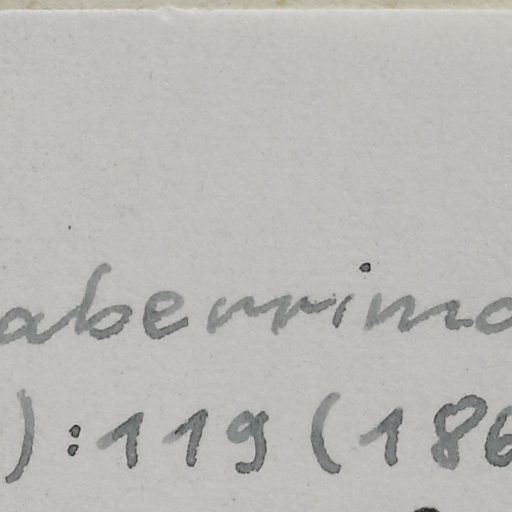 aberrima
) : 119 (186